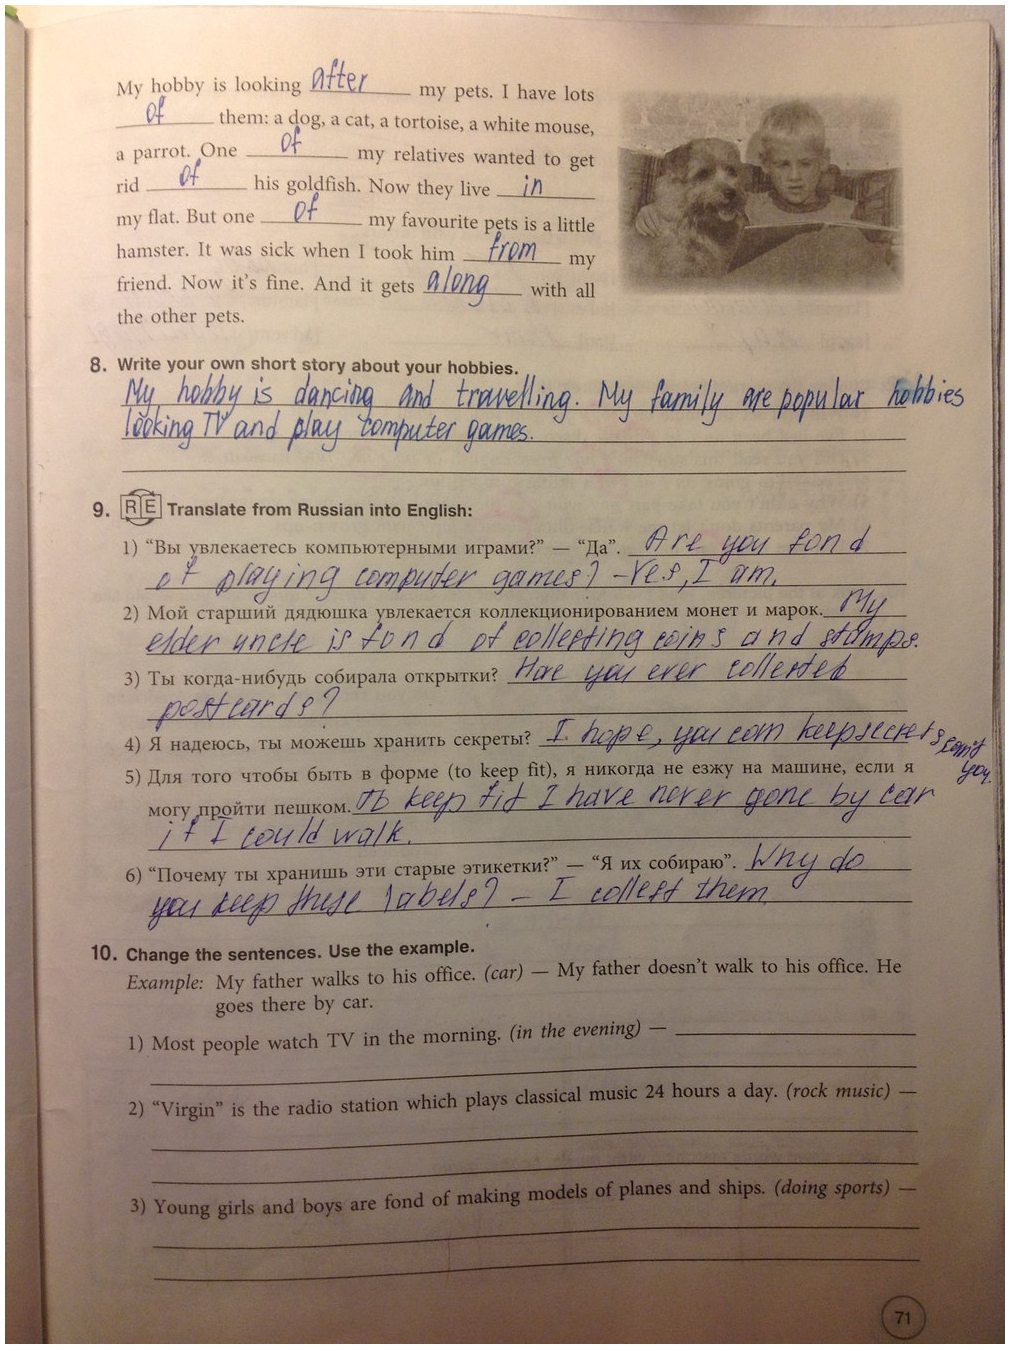 My hobby is looking after my pets. I have lots
of them: a dog, a cat, a tortoise, a white mouse,
a parrot. One of my relatives wanted to get
rid of his goldfish. Now they live in
my flat. But one of my favourite pets is a little
hamster. It was sick when I took him from my
friend. Now it's fine. And it gets along with all
the other pets.
8. Write your own short story about your hobbies.
My hobby is dancing and travelling. My family are popular hobbies
looking TV and play computer games.
9. RE Translate from Russian into English:
1) “Вы увлекаетесь компьютерными играми?” — “Да”. Are you fond
of playing computer games? – Yes, I am.
2) Мой старший дядюшка увлекается коллекционированием монет и марок. My
elder uncle is fond of collecting coins and stamps.
3) Ты когда-нибудь собирала открытки? Have you ever collected
postcards?
4) Я надеюсь, ты можешь хранить секреты? I hope, you can keep secrets, can't
you.
5) Для того чтобы быть в форме (to keep fit), я никогда не езжу на машине, если я
могу пройти пешком. To keep fit I have never gone by car
if I could walk.
6) “Почему ты хранишь эти старые этикетки?” — “Я их собираю”. Why do
you keep these labels? – I collect them.
10. Change the sentences. Use the example.
Example: My father walks to his office. (car) — My father doesn't walk to his office. He
goes there by car.
1) Most people watch TV in the morning. (in the evening) —
2) “Virgin” is the radio station which plays classical music 24 hours a day. (rock music) —
3) Young girls and boys are fond of making models of planes and ships. (doing sports) —
71